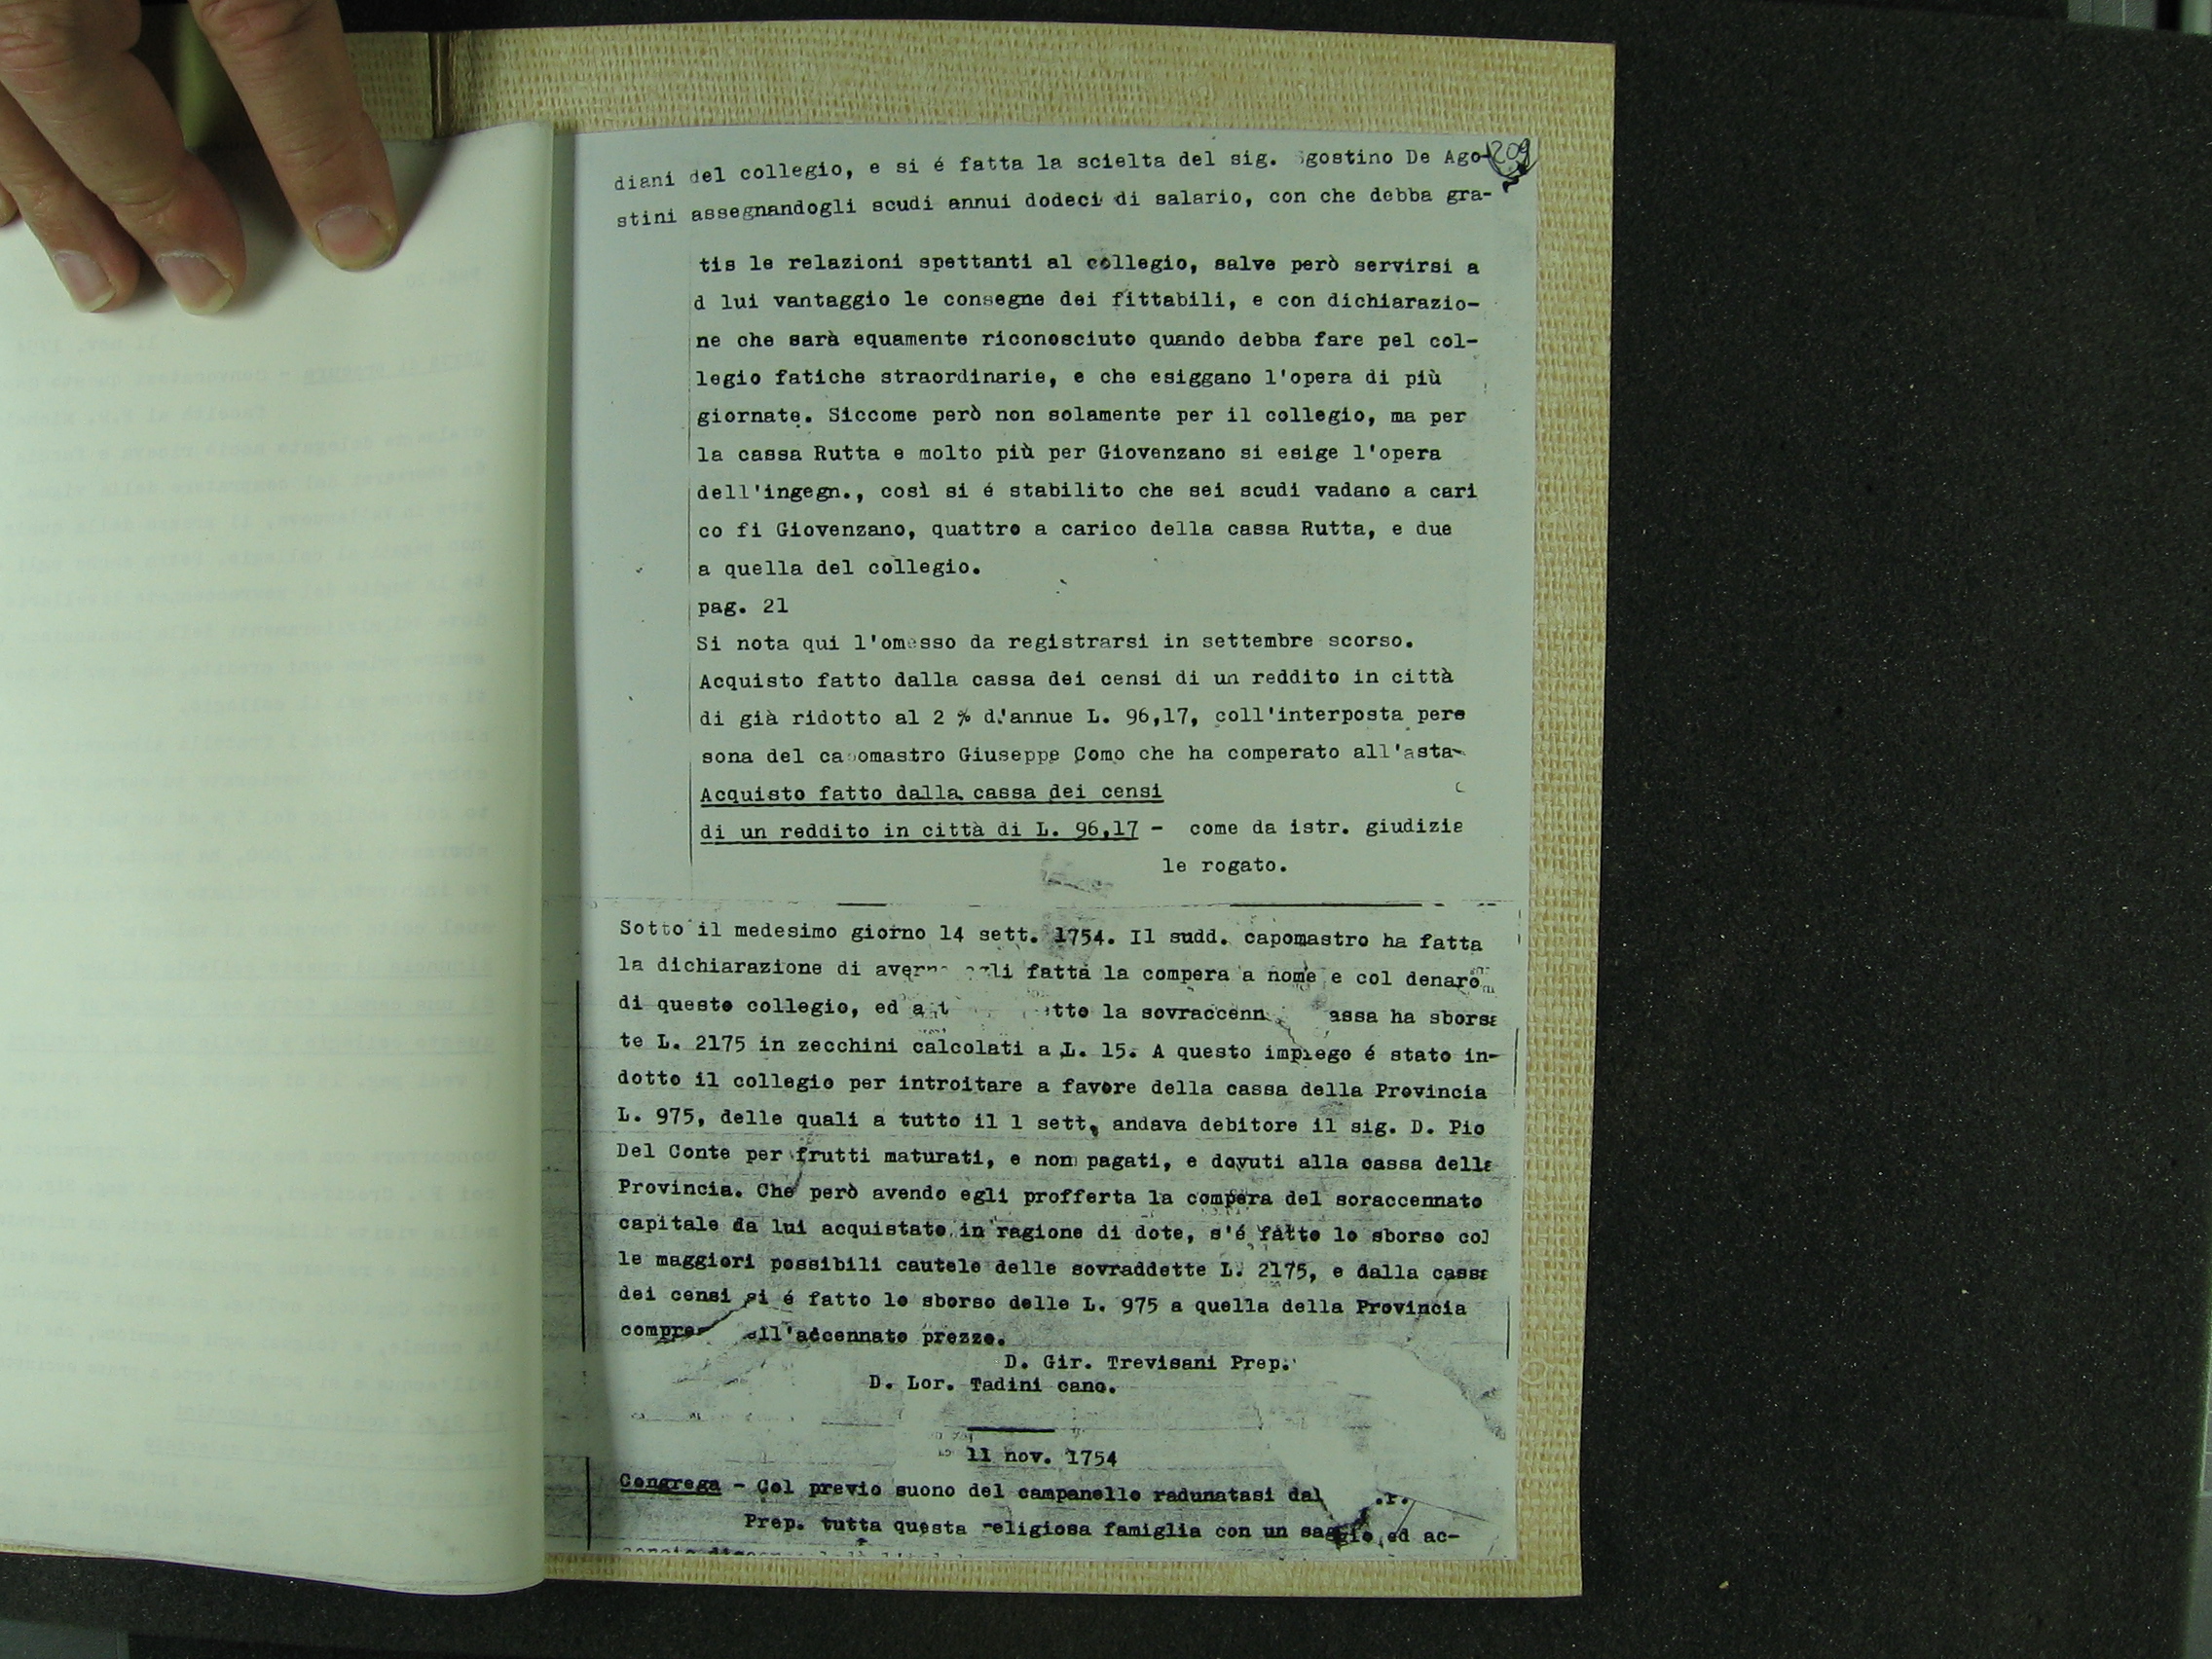 209
diani del collegio, e si é fatta la scielta del sig. gostino De Ago-
stini assegnandogli scudi annui dodeci di salario, con che debba gra-
tis le relazioni spettanti al collegio, salve però servirsi a
d lui vantaggio le consegne dei fittabili, e con dichiarazio-
ne che sarà equamente riconosciuto quando debba fare pel col-
legio fatiche straordinarie, e che esiggano l'opera di più
giornate. Siccome però non solamente per il collegio, ma per
la cassa Rutta e molto più per Giovenzano si esige l'opera
dell'ingegn., così si é stabilito che sei scudi vadano a cari
co fi Giovenzano, quattro a carico della cassa Rutta, e due
a quella del collegio.
pag. 21
Si nota qui l'omesso da registrarsi in settembre scorso.
Acquisto fatto dalla cassa dei censi di un reddito in città
di già ridotto al 2 % d'annue L. 96,17, coll'interposta pers
sona del capomastro Giuseppe Como che ha comperato all'asta-
Acquisto fatto dalla cassa dei censi
di un reddito in città di L. 96,17 - come da istr. giudizia
le rogato.
Sotto il medesimo giorno 14 sett. 1754. Il sudd. capomastro ha fatta
la dichiarazione di averne egli fatta la compera a nome e col denaro
di questo collegio, ed la ha sborsa
te L. 2175 in zecchini calcolati a L. 15. A questo impiego é stato in-
dotto il collegio per introitare a favore della cassa della Provincia
L. 975, delle quali a tutto il 1 sett. andava debitore il sig. D. Pio
Del Conte per frutti maturati, e non pagati, e dovuti alla cassa della
Provincia. Che però avendo egli profferta la compera del soraccennato
capitale da lui acquistato in ragione di dote, s'é fatto lo sborso col
le maggiori possibili cautele delle sovraddette L. 2175, e dalla cassa
dei censi si é fatto lo sborso delle L. 975 a quella della Provincia
accennato prezzo.
D. Gir. Trevisani Prep.
D. Lor. Tadini canc.
11 nov. 1754
Congrega - Col previo suono del campanello radunatasi dal
Prep. tutta questa religiosa famiglia con un saggio ed ac-